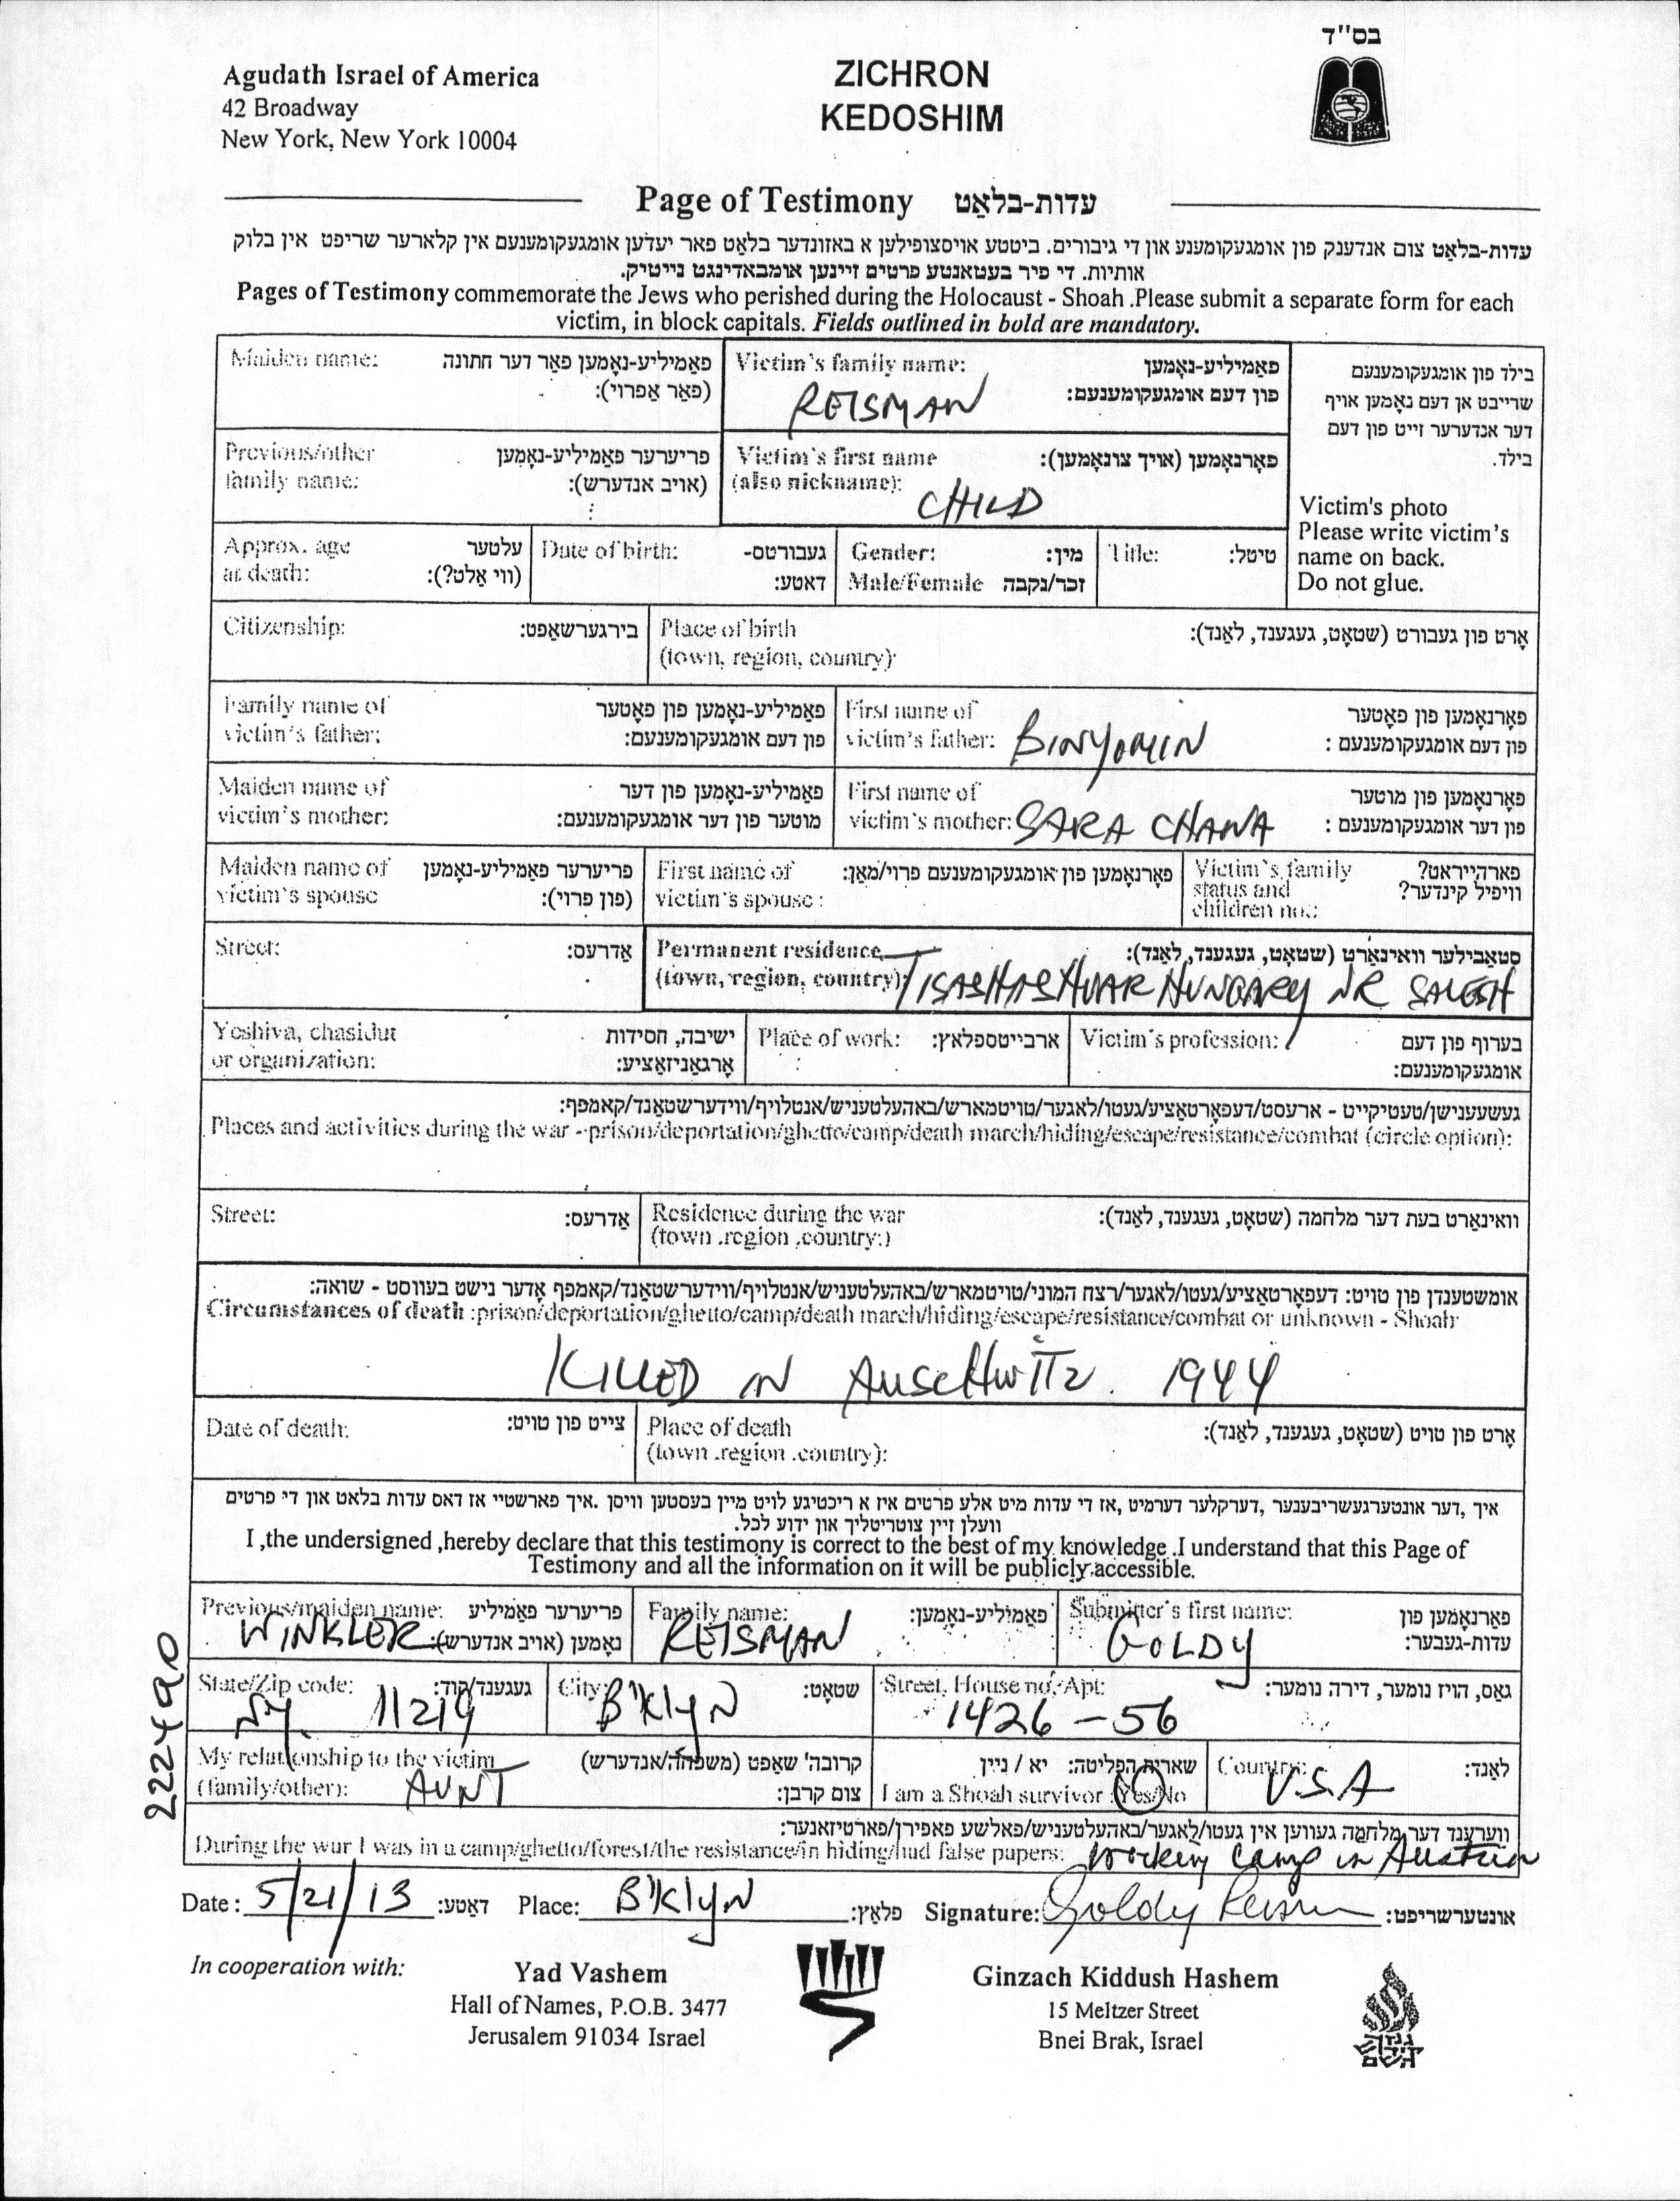 בס"ד
Agudath Israel of America
42 Broadway
New York, New York 10004
ZICHRON
KEDOSHIM
Page of Testimony עדות-בלאַט
עדות-בלאַט צום אנדענק פון אומגעקומענע און די גיבורים. ביטטע אויסצופילען א באזונדער בלאַט פאר יעדען אומגעקומענעם אין קלארער שריפט אין בלוק
אותיות. די פיר בעטאנטע פרטים זיינען אומבאדינגט נייטיק.
Pages of Testimony commemorate the Jews who perished during the Holocaust - Shoah .Please submit a separate form for each
victim, in block capitals. Fields outlined in bold are mandatory.
Maiden name: פאַמיליע-נאָמען פאַר דער חתונה
(פאַר אַפרוי):
Victim's family name: פאַמיליע-נאָמען
פון דעם אומגעקומענעם:
REISMAN
בילד פון אומגעקומענעם
שרייבט אן דעם נאָמען אויף
דער אנדערער זייט פון דעם
בילד.
Victim's photo
Please write victim's
name on back.
Do not glue.
Previous/other
family name:
פריערער פאַמיליע-נאָמען
(אויב אנדערש):
Victim's first name
(also nickname):
פאָרנאָמען (אויך צונאָמען):
CHILD
Approx. age
at death:
עלטער
(ווי אַלט?):
Date of birth: געבורטס-
דאטע:
Gender: מין:
Male/Female זכר/נקבה
Title: טיטל:
Citizenship: בירגערשאַפט:
Place of birth
(town, region, country):
אָרט פון געבורט (שטאָט, געגענד, לאַנד):
Family name of
victim's father:
פאַמיליע-נאָמען פון פאָטער
פון דעם אומגעקומענעם:
First name of
victim's father:
BINYOMIN
פאָרנאָמען פון פאָטער
פון דעם אומגעקומענעם :
Maiden name of
victim's mother:
פאַמיליע-נאָמען פון דער
מוטער פון דער אומגעקומענעם:
First name of
victim's mother:
SARA CHANA
פאָרנאָמען פון מוטער
פון דער אומגעקומענעם :
Maiden name of
victim's spouse
פריערער פאַמיליע-נאָמען
(פון פרוי):
First name of
victim's spouse :
פאָרנאָמען פון אומגעקומענעם פרוי/מאַן:
Victim's family
status and
children no.:
פארהייראט?
וויפיל קינדער?
Street: אַדרעס:
Permanent residence
(town, region, country):
סטאַבילער וואוינאָרט (שטאָט, געגענד, לאַנד):
TISASHASHVAR HUNGARY NR SALGSH
Yeshiva, chasidut
or organization:
ישיבה, חסידות
אָרגאַניזאַציע:
Place of work: ארבייטספלאץ:
Victim's profession: בערוף פון דעם
אומגעקומענעם:
געשעענישן/טעטיקייט - ארעסט/דעפאָרטאַציע/געטו/לאגער/טויטמארש/באהעלטעניש/אנטלויף/ווידערשטאַנד/קאמפף:
Places and activities during the war - prison/deportation/ghetto/camp/death march/hiding/escape/resistance/combat (circle option):
Street: אַדרעס:
Residence during the war
(town .region .country:)
וואוינאָרט בעת דער מלחמה (שטאָט, געגענד, לאַנד):
אומשטענדן פון טויט: דעפאָרטאַציע/געטו/לאגער/רצח המוני/טויטמארש/באהעלטעניש/אנטלויף/ווידערשטאַנד/קאמפף אָדער נישט בעווסט - שואה:
Circumstances of death :prison/deportation/ghetto/camp/death march/hiding/escape/resistance/combat or unknown - Shoah
KILLED IN AUSCHWITZ. 1944
Date of death: צייט פון טויט:
Place of death
(town .region .country):
אָרט פון טויט (שטאָט, געגענד, לאַנד):
איך ,דער אונטערגעשריבענער ,דערקלער דערמיט ,אז די עדות מיט אלע פרטים איז א ריכטיגע לויט מיין בעסטען וויסן .איך פארשטיי אז דאס עדות בלאט און די פרטים
וועלן זיין צוטריטליך און ידוע לכל.
I ,the undersigned ,hereby declare that this testimony is correct to the best of my knowledge .I understand that this Page of
Testimony and all the information on it will be publicly accessible.
Previous/maiden name: פריערער פאַמיליע
נאָמען (אויב אנדערש):
WINKLER
Family name: פאַמיליע-נאָמען:
REISMAN
Submitter's first name: פאַרנאָמען פון
עדות-געבער:
GOLDY
State/Zip code: געגענד/קוד:
NY. 11219
City: שטאָט:
B'klyN
Street, House no, Apt: גאס, הויז נומער, דירה נומער:
1426 - 56
My relationship to the victim
(family/other):
קרובה' שאַפט (משפחה/אנדערש)
צום קרבן:
AUNT
שארית הפליטה: יא / ניין
I am a Shoah survivor :Yes/No
Country: לאַנד:
U.S.A
ווערענד דער מלחמה געווען אין געטו/לאַגער/באהעלטעניש/פאלשע פאפירן/פארטיזאנער:
During the war I was in a camp/ghetto/forest/the resistance/in hiding/had false papers:
Working Camp in Austria
Date : 5/21/13 דאַטע:
Place: B'klyN פלאַץ:
Signature: Goldy Reisman אונטערשריפט:
222490
In cooperation with:
Yad Vashem
Hall of Names, P.O.B. 3477
Jerusalem 91034 Israel
Ginzach Kiddush Hashem
15 Meltzer Street
Bnei Brak, Israel
גנזך
קידוש
השם